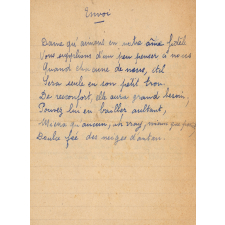 Envoi
Dame qu'aimons en votre âme fidèle
Vous supplions d'un peu penser à nous
Quand chacune de nous,
Sera seule en son petit trou.
De reconfort, elle aura grand besoin,
Pouvez lui en bailler aultant,
Mieux qu'aucun, un vray, mieux que
Doulce fée des neiges d'antan.